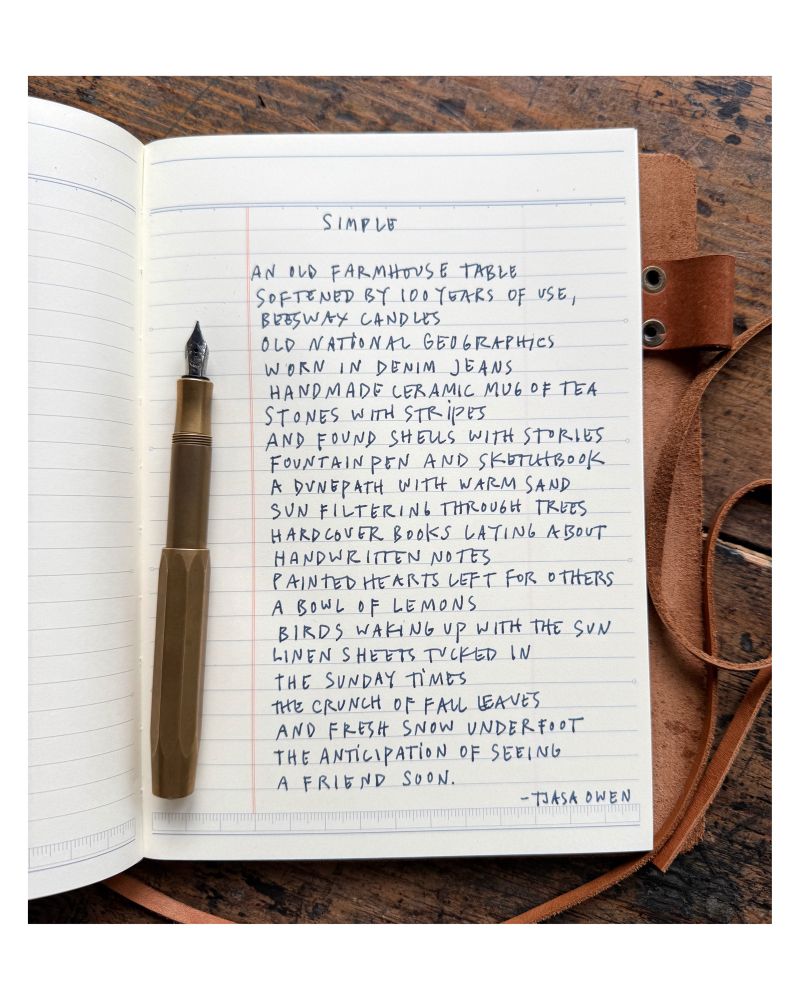 SIMPLE
AN OLD FARMHOUSE TABLE
SOFTENED BY 100 YEARS OF USE,
BEESWAX CANDLES
OLD NATIONAL GEOGRAPHICS
WORN IN DENIM JEANS
HANDMADE CERAMIC MUG OF TEA
STONES WITH STRIPES
AND FOUND SHELLS WITH STORIES
FOUNTAIN PEN AND SKETCHBOOK
A DUNEPATH WITH WARM SAND
SUN FILTERING THROUGH TREES
HARDCOVER BOOKS LAYING ABOUT
HANDWRITTEN NOTES
PAINTED HEARTS LEFT FOR OTHERS
A BOWL OF LEMONS
BIRDS WAKING UP WITH THE SUN
LINEN SHEETS TUCKED IN
THE SUNDAY TIMES
THE CRUNCH OF FALL LEAVES
AND FRESH SNOW UNDERFOOT
THE ANTICIPATION OF SEEING
A FRIEND SOON.
-TJASA OWEN